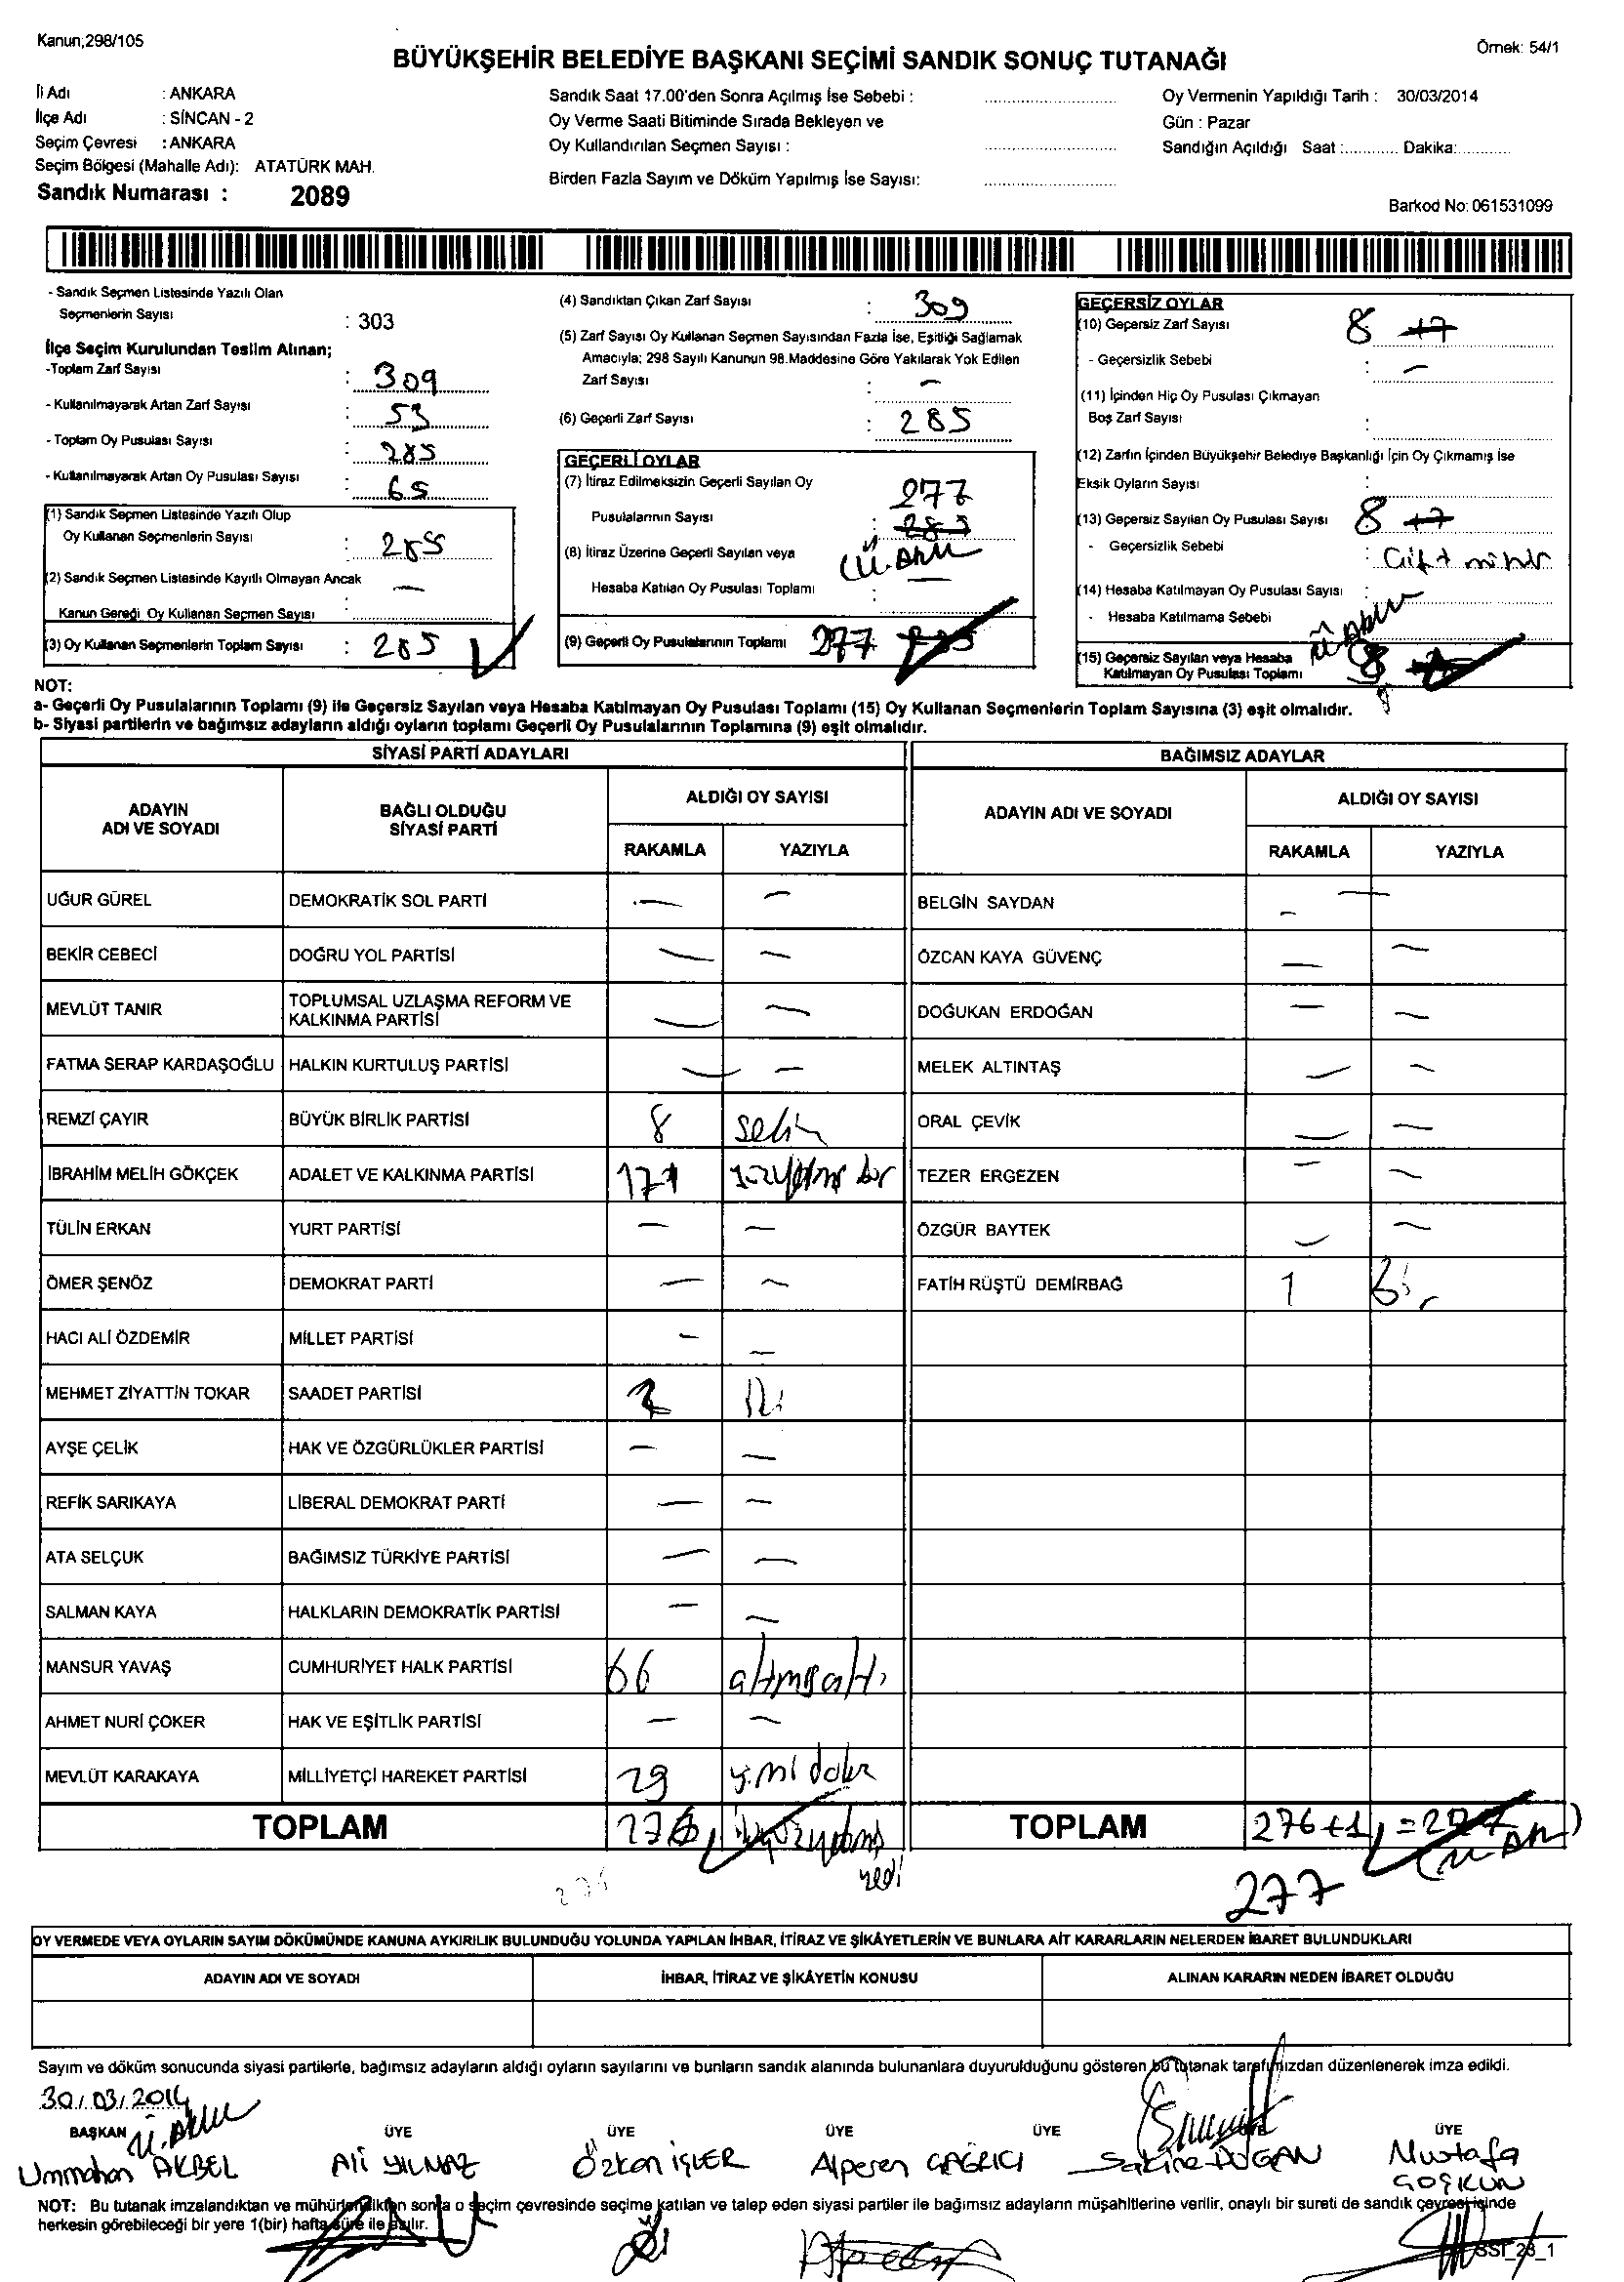 Kanun;298/105
Örnek: 54/1
BÜYÜKŞEHİR BELEDİYE BAŞKANI SEÇİMİ SANDIK SONUÇ TUTANAĞI
İl Adı : ANKARA
İlçe Adı : SİNCAN - 2
Seçim Çevresi : ANKARA
Seçim Bölgesi (Mahalle Adı): ATATÜRK MAH.
Sandık Numarası : 2089
Sandık Saat 17.00'den Sonra Açılmış İse Sebebi :
Oy Verme Saati Bitiminde Sırada Bekleyen ve
Oy Kullandırılan Seçmen Sayısı :
Birden Fazla Sayım ve Döküm Yapılmış İse Sayısı:
Oy Vermenin Yapıldığı Tarih : 30/03/2014
Gün : Pazar
Sandığın Açıldığı Saat :............ Dakika:...........
Barkod No: 061531099
- Sandık Seçmen Listesinde Yazılı Olan
Seçmenlerin Sayısı : 303
İlçe Seçim Kurulundan Teslim Alınan;
-Toplam Zarf Sayısı : 309
- Kullanılmayarak Artan Zarf Sayısı : 53
- Toplam Oy Pusulası Sayısı : 285
- Kullanılmayarak Artan Oy Pusulası Sayısı : 65
(1) Sandık Seçmen Listesinde Yazılı Olup
Oy Kullanan Seçmenlerin Sayısı : 285
(2) Sandık Seçmen Listesinde Kayıtlı Olmayan Ancak —
Kanun Gereği Oy Kullanan Seçmen Sayısı :
(3) Oy Kullanan Seçmenlerin Toplam Sayısı : 285
(4) Sandıktan Çıkan Zarf Sayısı : 309
(5) Zarf Sayısı Oy Kullanan Seçmen Sayısından Fazla İse, Eşitliği Sağlamak
Amacıyla; 298 Sayılı Kanunun 98.Maddesine Göre Yakılarak Yok Edilen
Zarf Sayısı : —
(6) Geçerli Zarf Sayısı : 285
GEÇERLİ OYLAR
(7) İtiraz Edilmeksizin Geçerli Sayılan Oy 277
Pusulalarının Sayısı :
(8) İtiraz Üzerine Geçerli Sayılan veya (Ü.AKU
Hesaba Katılan Oy Pusulası Toplamı : —
(9) Geçerli Oy Pusulalarının Toplamı 277
GEÇERSİZ OYLAR
(10) Geçersiz Zarf Sayısı 8 +7
- Geçersizlik Sebebi : —
(11) İçinden Hiç Oy Pusulası Çıkmayan
Boş Zarf Sayısı :
(12) Zarfın İçinden Büyükşehir Belediye Başkanlığı İçin Oy Çıkmamış İse
Eksik Oyların Sayısı :
(13) Geçersiz Sayılan Oy Pusulası Sayısı 8 +7
- Geçersizlik Sebebi : Çift mühür
(14) Hesaba Katılmayan Oy Pusulası Sayısı :
- Hesaba Katılmama Sebebi
(15) Geçersiz Sayılan veya Hesaba
Katılmayan Oy Pusulası Toplamı : 8
NOT:
a- Geçerli Oy Pusulalarının Toplamı (9) ile Geçersiz Sayılan veya Hesaba Katılmayan Oy Pusulası Toplamı (15) Oy Kullanan Seçmenlerin Toplam Sayısına (3) eşit olmalıdır.
b- Siyasi partilerin ve bağımsız adayların aldığı oyların toplamı Geçerli Oy Pusulalarının Toplamına (9) eşit olmalıdır.
SİYASİ PARTİ ADAYLARI
ADAYIN ADI VE SOYADI BAĞLI OLDUĞU SİYASİ PARTİ ALDIĞI OY SAYISI
RAKAMLA YAZIYLA
UĞUR GÜREL DEMOKRATİK SOL PARTİ — —
BEKİR CEBECİ DOĞRU YOL PARTİSİ — —
MEVLÜT TANIR TOPLUMSAL UZLAŞMA REFORM VE KALKINMA PARTİSİ — —
FATMA SERAP KARDAŞOĞLU HALKIN KURTULUŞ PARTİSİ — —
REMZİ ÇAYIR BÜYÜK BİRLİK PARTİSİ 8 sekiz
İBRAHİM MELİH GÖKÇEK ADALET VE KALKINMA PARTİSİ 171 yüzyetmiş bir
TÜLİN ERKAN YURT PARTİSİ — —
ÖMER ŞENÖZ DEMOKRAT PARTİ — —
HACI ALİ ÖZDEMİR MİLLET PARTİSİ — —
MEHMET ZİYATTİN TOKAR SAADET PARTİSİ 2 iki
AYŞE ÇELİK HAK VE ÖZGÜRLÜKLER PARTİSİ — —
REFİK SARIKAYA LİBERAL DEMOKRAT PARTİ — —
ATA SELÇUK BAĞIMSIZ TÜRKİYE PARTİSİ — —
SALMAN KAYA HALKLARIN DEMOKRATİK PARTİSİ — —
MANSUR YAVAŞ CUMHURİYET HALK PARTİSİ 66 altmışaltı
AHMET NURİ ÇOKER HAK VE EŞİTLİK PARTİSİ — —
MEVLÜT KARAKAYA MİLLİYETÇİ HAREKET PARTİSİ 29 yirmi dokuz
TOPLAM 276 ikiyüzyetmiş
yedi
BAĞIMSIZ ADAYLAR
ADAYIN ADI VE SOYADI ALDIĞI OY SAYISI
RAKAMLA YAZIYLA
BELGİN SAYDAN — —
ÖZCAN KAYA GÜVENÇ — —
DOĞUKAN ERDOĞAN — —
MELEK ALTINTAŞ — —
ORAL ÇEVİK — —
TEZER ERGEZEN — —
ÖZGÜR BAYTEK — —
FATİH RÜŞTÜ DEMİRBAĞ 1 Bir
TOPLAM 276+1 = 277
277
OY VERMEDE VEYA OYLARIN SAYIM DÖKÜMÜNDE KANUNA AYKIRILIK BULUNDUĞU YOLUNDA YAPILAN İHBAR, İTİRAZ VE ŞİKÂYETLERİN VE BUNLARA AİT KARARLARIN NELERDEN İBARET BULUNDUKLARI
ADAYIN ADI VE SOYADI İHBAR, İTİRAZ VE ŞİKÂYETİN KONUSU ALINAN KARARIN NEDEN İBARET OLDUĞU
Sayım ve döküm sonucunda siyasi partilerle, bağımsız adayların aldığı oyların sayılarını ve bunların sandık alanında bulunanlara duyurulduğunu gösteren bu tutanak tarafımızdan düzenlenerek imza edildi.
30/03/2014
BAŞKAN ÜYE ÜYE ÜYE ÜYE ÜYE
Ummahan AKBEL Ali YILMAZ Özkan İŞLER Alperen ÇAĞRICI Sakine DOĞAN Mustafa COŞKUN
NOT: Bu tutanak imzalandıktan ve mühürlendikten sonra o seçim çevresinde seçime katılan ve talep eden siyasi partiler ile bağımsız adayların müşahitlerine verilir, onaylı bir sureti de sandık çevresi içinde
herkesin görebileceği bir yere 1(bir) hafta süre ile asılır.
SSI_23_1